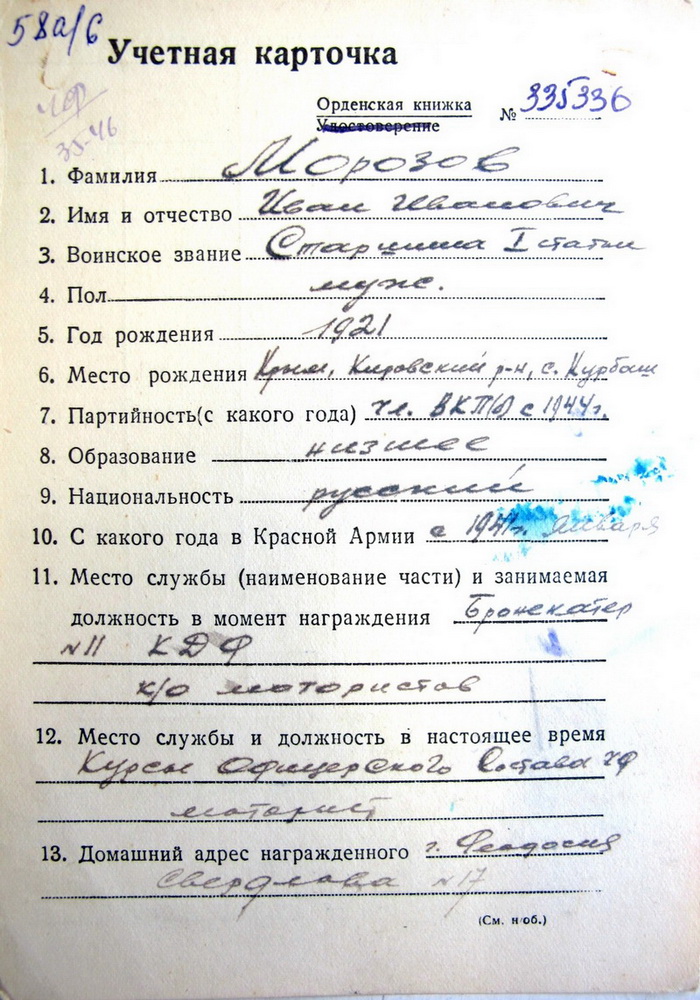 58а/6
Учетная карточка
35-46
Орденская книжка № 335336
Удостоверение
1. Фамилия Морозов
2. Имя и отчество Иван Иванович
3. Воинское звание Старшина I статьи
4. Пол муж.
5. Год рождения 1921
6. Место рождения Крым, Кировский р-н, с. Курбаш
7. Партийность(с какого года) чл. ВКП(б) с 1944г.
8. Образование низшее
9. Национальность русский
10. С какого года в Красной Армии с 1941г. января
11. Место службы (наименование части) и занимаемая
должность в момент награждения Бронекатер
№11 КДФ
к/о мотористов
12. Место службы и должность в настоящее время
Курсы Офицерского Состава ЧФ
моторист
13. Домашний адрес награжденного г. Феодосия
Свердлова №17
(См. н/об.)